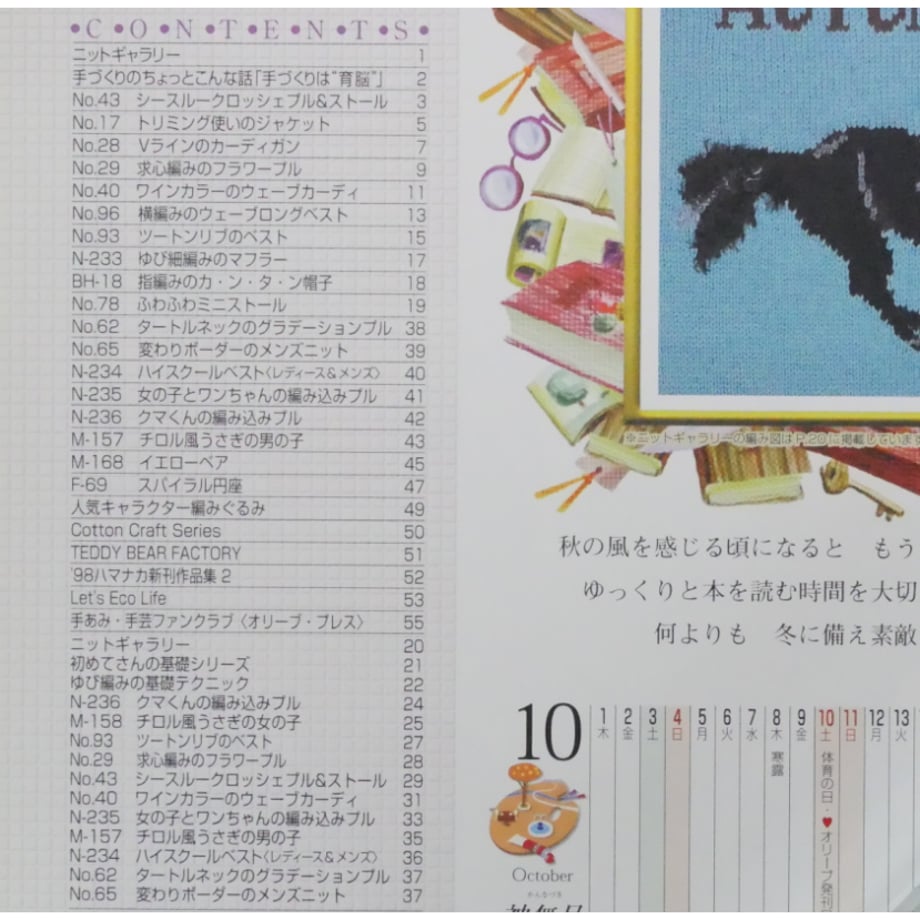 •C•O•N•T•E•N•T•S•
ニットギャラリー 1
手づくりのちょっとこんな話「手づくりは“育脳”」 2
No.43 シースルークロッシェプル&ストール 3
No.17 トリミング使いのジャケット 5
No.28 Vラインのカーディガン 7
No.29 求心編みのフラワープル 9
No.40 ワインカラーのウェーブカーディ 11
No.96 横編みのウェーブロングベスト 13
No.93 ツートンリブのベスト 15
N-233 ゆび細編みのマフラー 17
BH-18 指編みのカ・ン・タ・ン帽子 18
No.78 ふわふわミニストール 19
No.62 タートルネックのグラデーションプル 38
No.65 変わりボーダーのメンズニット 39
N-234 ハイスクールベスト〈レディース&メンズ〉 40
N-235 女の子とワンちゃんの編み込みプル 41
N-236 クマくんの編み込みプル 42
M-157 チロル風うさぎの男の子 43
M-168 イエローベア 45
F-69 スパイラル円座 47
人気キャラクター編みぐるみ 49
Cotton Craft Series 50
TEDDY BEAR FACTORY 51
'98ハマナカ新刊作品集 2 52
Let's Eco Life 53
手あみ・手芸ファンクラブ〈オリーブ・プレス〉 55
ニットギャラリー 20
初めてさんの基礎シリーズ 21
ゆび編みの基礎テクニック 22
N-236 クマくんの編み込みプル 24
M-158 チロル風うさぎの女の子 25
No.93 ツートンリブのベスト 27
No.29 求心編みのフラワープル 28
No.43 シースルークロッシェプル&ストール 29
No.40 ワインカラーのウェーブカーディ 31
N-235 女の子とワンちゃんの編み込みプル 33
M-157 チロル風うさぎの男の子 35
N-234 ハイスクールベスト〈レディース&メンズ〉 36
No.62 タートルネックのグラデーションプル 37
No.65 変わりボーダーのメンズニット 37
※ニットギャラリーの編み図はP.20に掲載しています
秋の風を感じる頃になると もう
ゆっくりと本を読む時間を大切
何よりも 冬に備え素敵
10
October
かんなづき
1 2 3 4 5 6 7 8 9 10 11 12 13
木 金 土 日 月 火 水 木 金 土 日 月 火
寒露
体育の日・♥オリーブ発刊